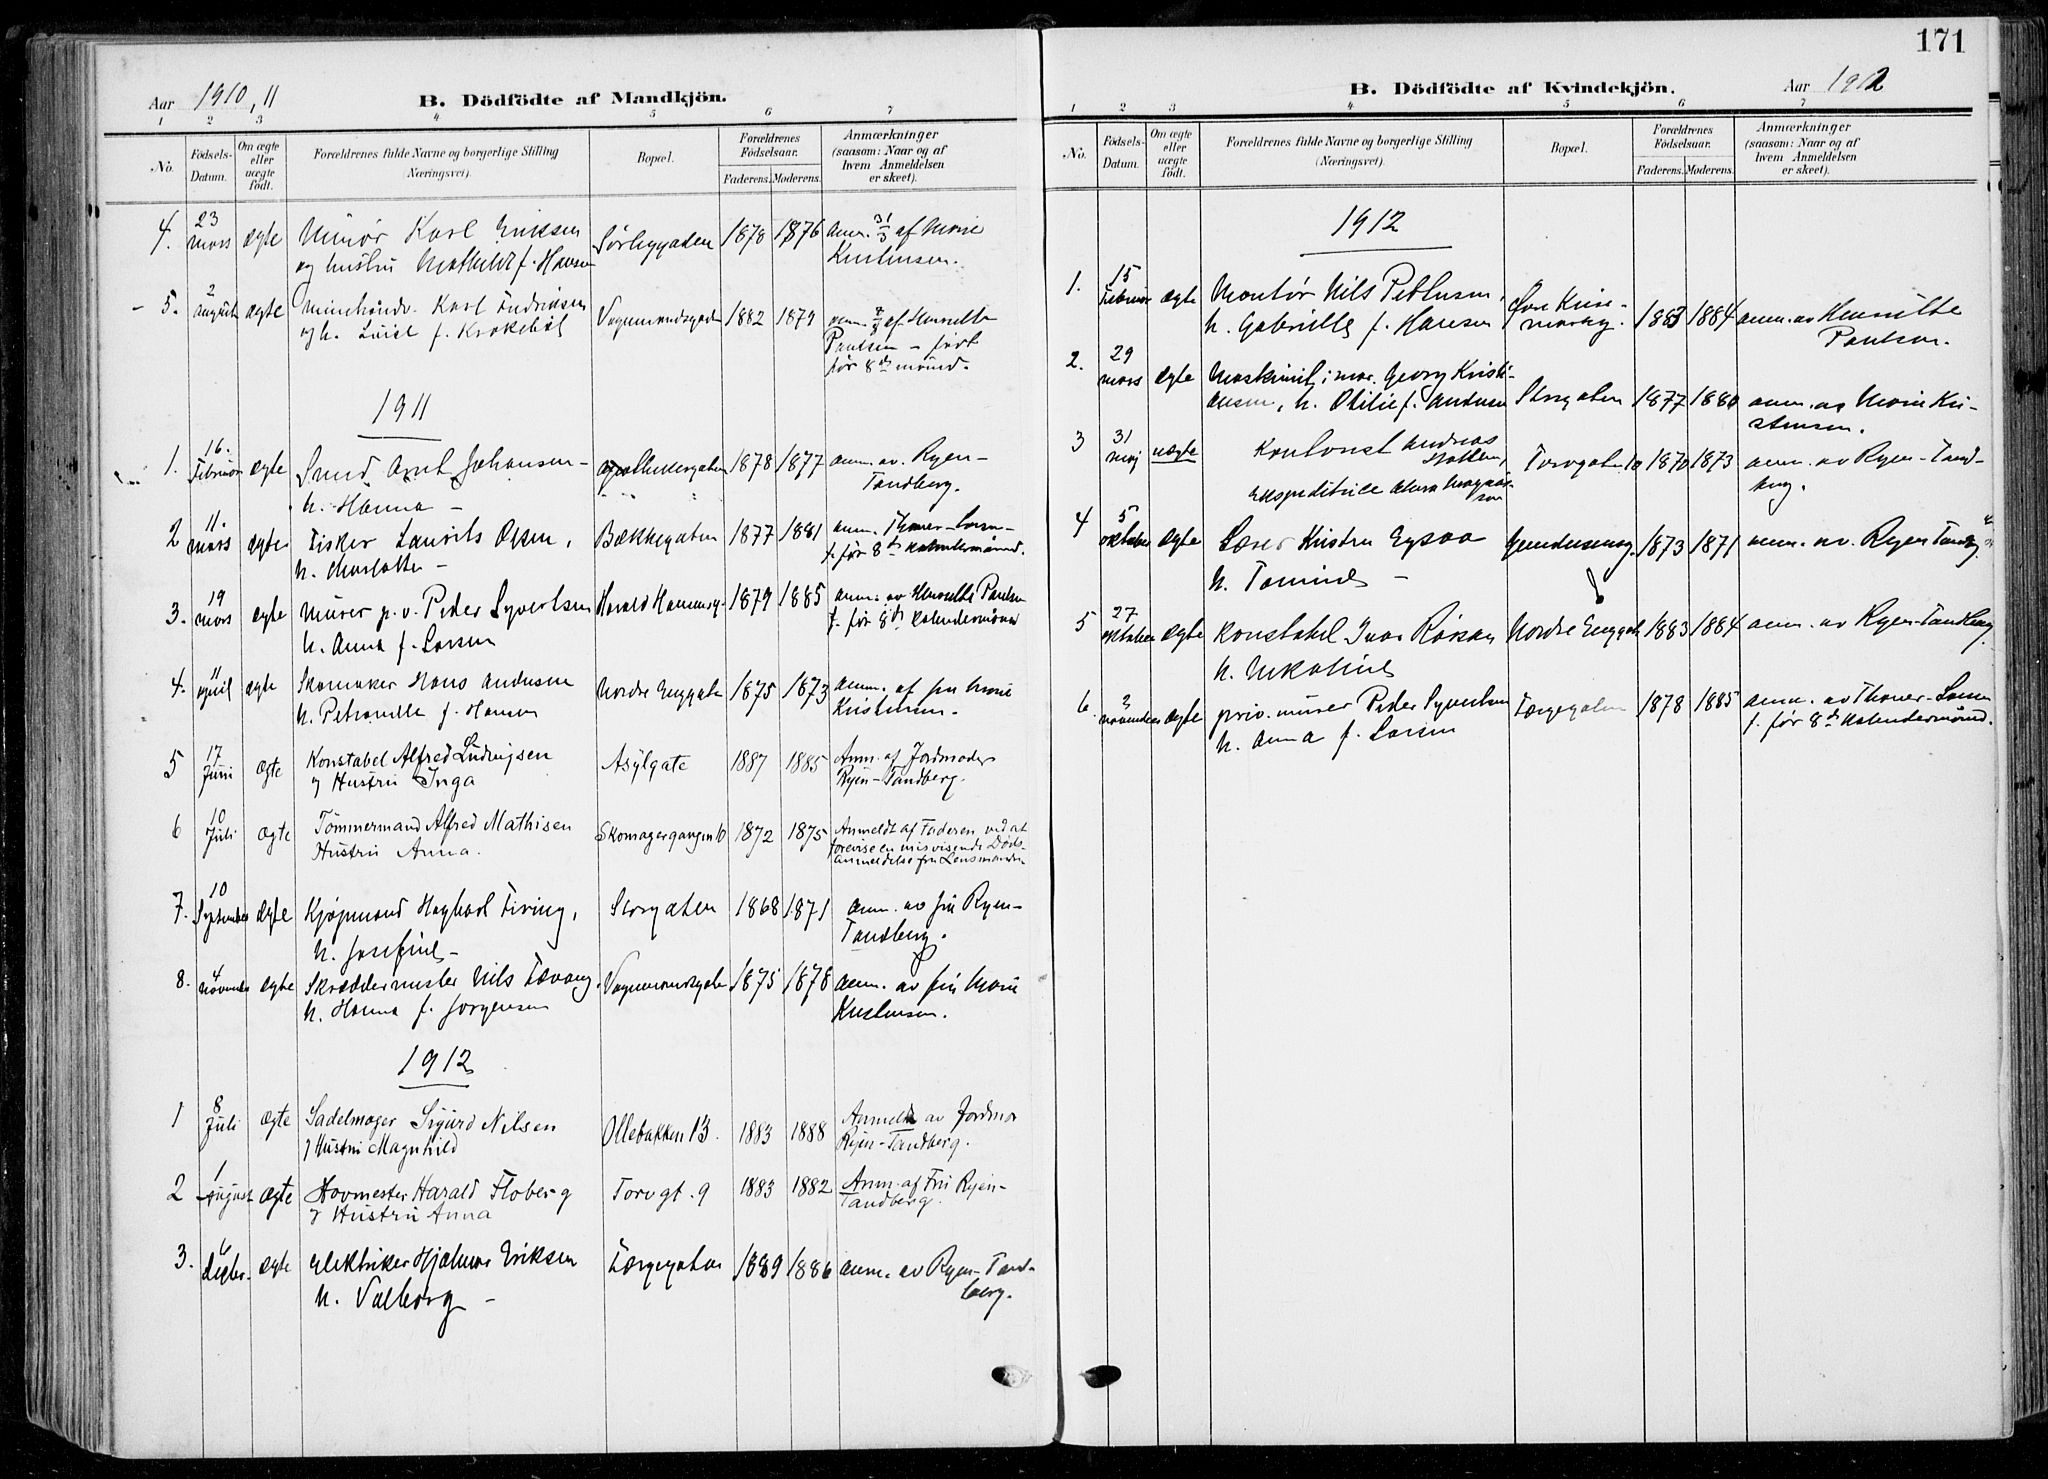 Aar 1910, 11
B. Dödfödte af Mandkjön.
1 2 3 4 5 6 7
No.
Födsels-Datum.
Om ægte eller uægte født.
Forældrenes fulde Navne og borgerlige Stilling
(Næringsvei).
Bopæl.
Forældrenes Födselsaar.
Faderens. Moderens.
Anmærkninger
(saasom: Naar og af
hvem Anmeldelsen
er skeet).
4. 23 mars ægte Karl Eriksen 1878 1876 anm. 31/3 af Marie
og hustru Mathilde f. Hansen
Kristensen.
5. 2 august ægte Karl Endriksen 1882 1879 anm. af Henriette
og h. Luise f. Krokebøl
Paulsen – født
før 8de måned.
1911
1. 16. Februar ægte Smed Arnt Johansen – 1878 1877 anm. av. Ryen-
h. Hanna –
Tandberg.
2 11. mars ægte Fisker Laurits Olsen, Bækkegaten 1877 1881 anm. Thoner-Larsen
h. Charlotte –
f. før 8de kalendermåned.
3. 19 mars ægte Murer p.v. Peder Syvertsen Harald Haaresg. 1879 1885 anm. av Henriette Paulsen
h. Anna f. Larsen
f. før 8de kalendermåned
4. 11 april ægte Skomaker Hans Andersen Nordre Enggate 1875 1873 anm. af fru Marie
h. Petronelle f. Hansen
Kristensen.
5 17 Juni ægte Konstabel Alfred Ludvigsen Asylgate 1887 1885 Anm. af Jordmoder
og Hustru Inga
Ryen-Tandberg.
6 10 Juli ægte Tömmermand Alfred Mathisen Skomagergangen 10 1872 1875 Anmeldt af Faderen ved at
Hustru Anna.
forevise en misvisende Døds-
anmeldelse fra Lensmanden
7. 10 September ægte Kjøpmand Hagbart Firing, Storgaten 1868 1871 anm. av fru Ryen-
h. Josefine –
Tandberg.
8. 4 November ægte Skræddermester Nils Tævang, 1875 1878 anm. av fru Marie
h. Hanna f. Jørgensen
Kristensen.
1912
1 8 Juli ægte Sadelmager Sigurd Nilsen Ollebakken 13. 1883 1888 Anmeldt av Jordmor
og Hustru Magnhild
Ryen-Tandberg.
2 1 August ægte Hovmester Harald Floberg Torvgt. 9 1883 1882 Anm. af Fru Ryen-
og Hustru Anna
Tandberg.
3. 6 ægte Elektriker Hjalmar Eriksen Færgegaten 1889 1886 anm. av Ryen-Tand-
h. Valborg –
berg.
171
B. Dödfödte af Kvindekjön.
Aar 1912
1 2 3 4 5 6 7
No.
Födsels-Datum.
Om ægte eller uægte født.
Forældrenes fulde Navne og borgerlige Stilling
(Næringsvei).
Bopæl.
Forældrenes Födselsaar.
Faderens. Moderens.
Anmærkninger
(saasom: Naar og af
hvem Anmeldelsen
er skeet).
1912
1. 15 Februar ægte Montør Nils Pettersen, 1883 1884 anm. av Henriette
h. Gabrielle f. Hansen
Paulson.
2. 29 mars ægte Maskinist i mar. Georg Kristi- Storgaten 1877 1880 anm. av Marie Kri-
ansen, h. Otilie f. Andersen
stensen.
3 31 maj uægte Kontorist Andreas Torvgaten 10 1870 1873 anm. av Ryen-Tand-
Ekspeditrice
berg.
4 5 oktober ægte Lærer Kristen 1873 1871 anm. av. Ryen Tandbg.
h. Tomine –
5 27 oktober ægte Konstabel Ivar Nordre Enggate 1883 1884 anm. av Ryen-Tandberg.
h. Nikoline
6. 2 november ægte priv. murer Peder Syvertsen Færgegaten 1878 1885 anm. av Thoner-Larsen
h. Anna f. Larsen
f. før 8de kalendermåned.